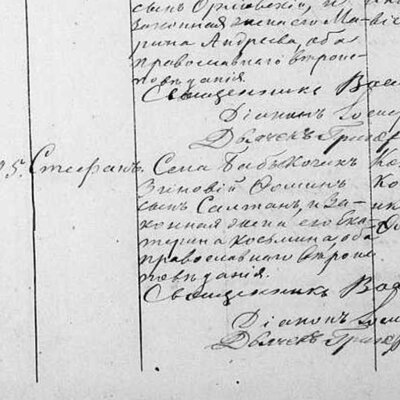 сынъ Орловскій, и
законная жена его Ма-
рина Андреева, оба
православнаго вѣроис-
повѣданія.
Священникъ Вас
Діаконъ Іосиф
Дьячекъ Григор
5. Стефанъ. Села Бабыкочекъ
Зѣновій Ѳоминъ
сынъ Салтан, и За-
конная жена его Ека-
терина Козьмина, оба
православнаго вѣроис-
повѣданія.
Священникъ Вас
Діаконъ Іосиф
Дьячекъ Григор